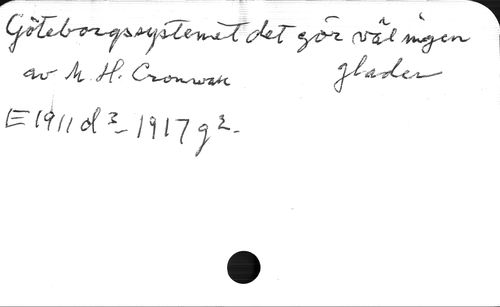 Göteborgssystemet det gör väl ingen
glader
av M. H. Cronwall
E 1911 d 3 - 1917 g 2 -